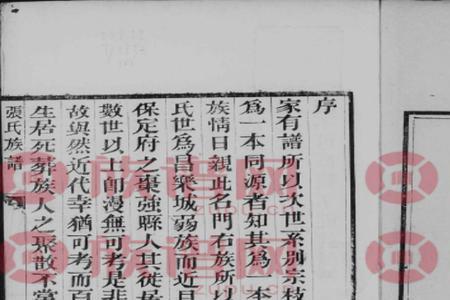 序
家有譜所以次世系別宗枝
為一本同源者知其為一本
族情日親此名門右族所以
氏世為昌樂城弱族而近日
保定府之棗強縣人其徙居
數世以上卽漫無可考是非
故與然近代幸猶可考而百
生居死葬族人之聚散不當
張氏族譜